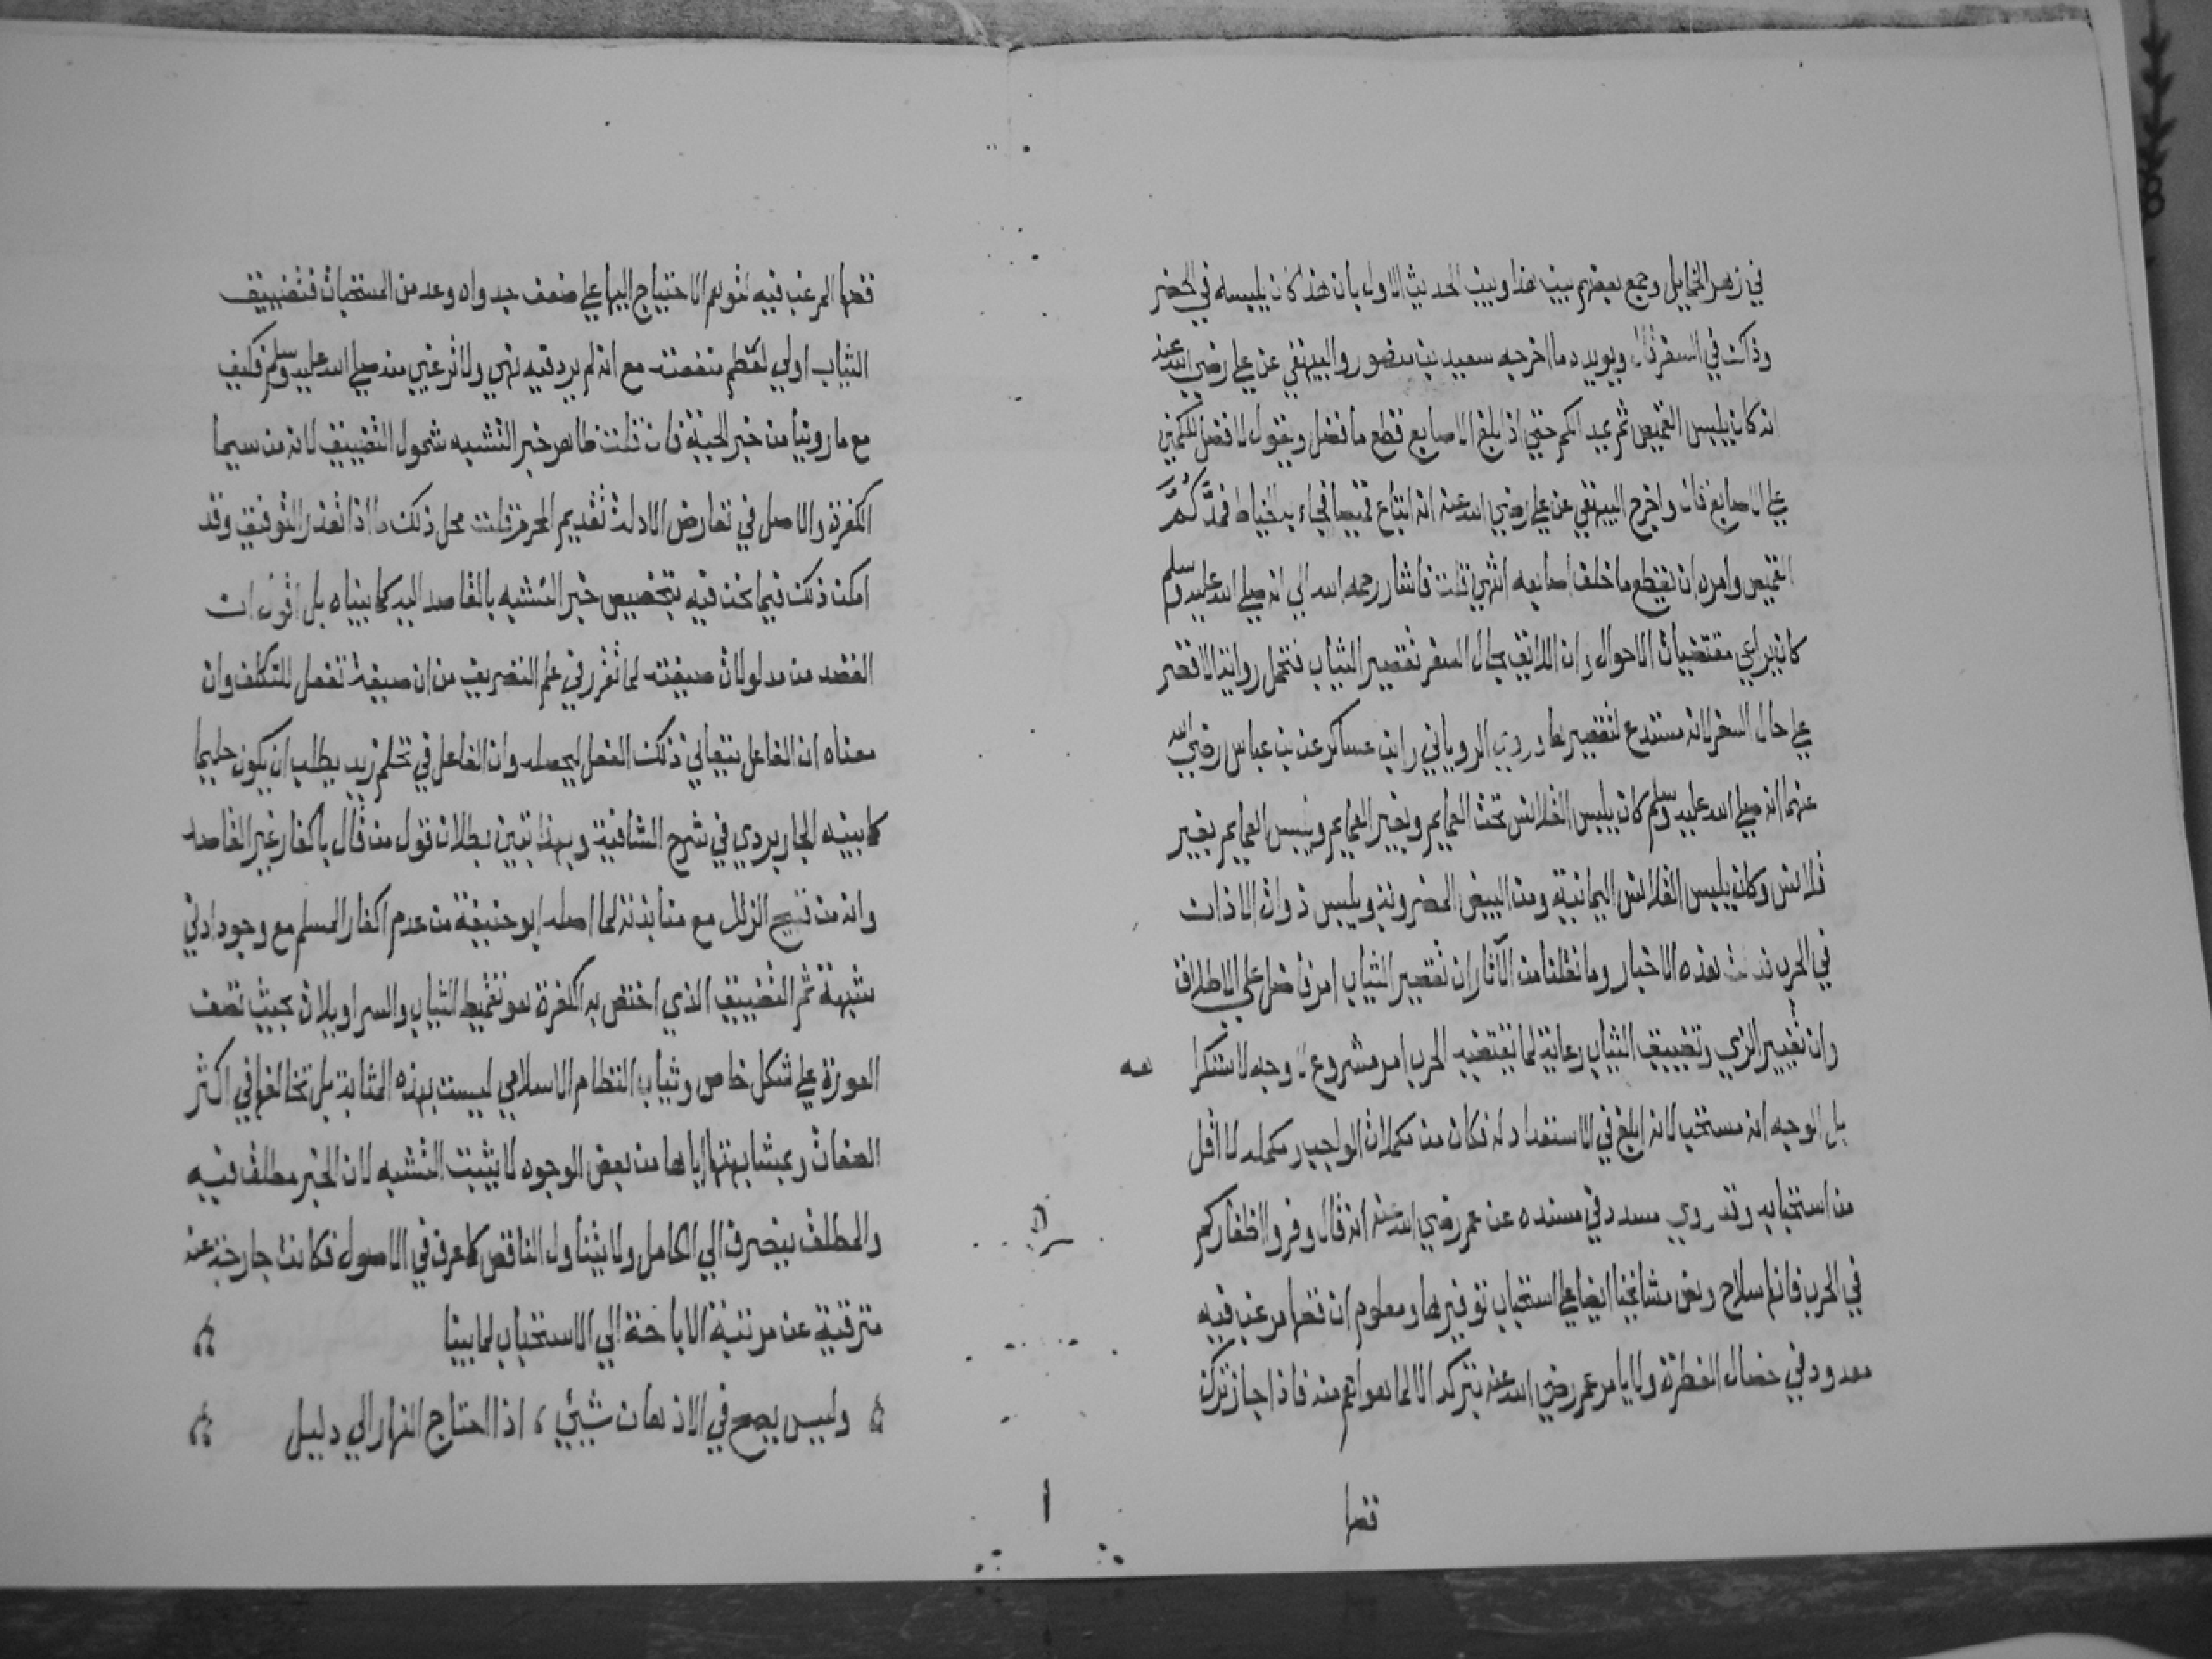 في زهر الخمايل وجمع بعضهم بين هذا وبين الحديث الاول بان هذا كان يلبسه في الحضر
وذاك في السفر قال ويويده ما اخرجه سعيد بن منصور والبيهقي عن علي رضي الله عنه
انه كان يلبس القميص ثم يمد الكم حتى اذا بلغ الاصابع قطع ما فضل ويقول لا فضل للكمين
علي الاصابع قال واخرج البيهقي عن علي رضي الله عنه انه ابتاع قميصا فجاء به الخياط فمد كم
القميص وامره ان يقطع ما خلف اصابعه انتهي قلت فاشار رحمه الله الي انه صلي الله عليه وسلم
كان يراعي مقتضيات الاحوال وان اللائق بحال السفر تقصير الثياب فتحمل رواية الاقصر
علي حال السفر لانه مستدع لتقصيرها وروي الروياني وابن عساكر عن بن عباس رضي الله
عنهما انه صلي الله عليه وسلم كان يلبس القلانس تحت العمايم وبغير العمايم ويلبس العمايم بغير
قلانس وكان يلبس القلانس اليمانية ومن البيض المضروبة ويلبس ذوات الاذان
في الحرب فدلت هذه الاخبار وما نقلنا من الآثار ان تقصير الثياب امر فاضل علي الاطلاق
وان تغيير الزي وتضييق الثياب رعاية لما تقتضيه الحرب امر مشروع لا وجه لاستنكاره
بل الوجه انه مستحب لانه ابلغ في الاستعداد له فكان من مكملات الواجب ومكمله لا اقل
من استحبابه وقد روي مسدد في مسنده عن عمر رضي الله عنه انه قال وفروا اظفاركم
في الحرب فانها سلاح ونص مشائخنا ايضا علي استحباب توفيرها ومعلوم ان قصها مرغب فيه
معدود في خصال الفطرة ولا يامر عمر رضي الله عنه بتركه الا لما هو اهم منه فاذا جاز ترك
قصها
قصها المرغب فيه لتوهم الاحتياج اليها علي ضعف جدواه وعد من المستحبات فتضييق
الثياب اولي لعظم منفعته مع انه لم يرد فيه نهي ولا ترغيب منه صلي الله عليه وسلم فكيف
مع ما روينا من خبر الجبة فان قلت ظاهر خبر التشبه شمول التضييق لانه من سيما
الكفرة والاصل في تعارض الادلة تقديم المحرم قلت محل ذلك ما اذا تعذر التوفيق وقد
امكن ذلك فيما نحن فيه بتخصيص خبر التشبه بالقاصد اليه كما بيناه بل اقول ان
القصد من مدلولات صيغته لما تقرر في علم التصريف من ان صيغة تفعل للتكلف وان
معناه ان الفاعل يتعاني ذلك الفعل ليحصله وان الفاعل في تحلم زيد يطلب ان يكون حليما
كما بينه الجاربردي في شرح الشافية وبهذا تبين بطلان قول من قال باكفار غير القاصد
وانه من قبيح الزلل مع منابذته لما اصله ابو حنيفة من عدم اكفار المسلم مع وجود ادني
شبهة ثم التضييق الذي اختص به الكفرة هو تقميط الثياب والسراويلات بحيث تصف
العورة علي شكل خاص وثياب النظام الاسلامي ليست بهذه المثابة بل تخالفها في اكثر
الصفات ومشابهتها اياها من بعض الوجوه لا يثبت التشبه لان الخبر مطلق فيه
والمطلق ينصرف الي الكامل ولا يتناول الناقص كما عرف في الاصول فكانت خارجة عنه
مترقية عن مرتبة الاباحة الي الاستحباب لما بينا
وليس يصح في الاذهان شيئ ، اذا احتاج النهار الي دليل